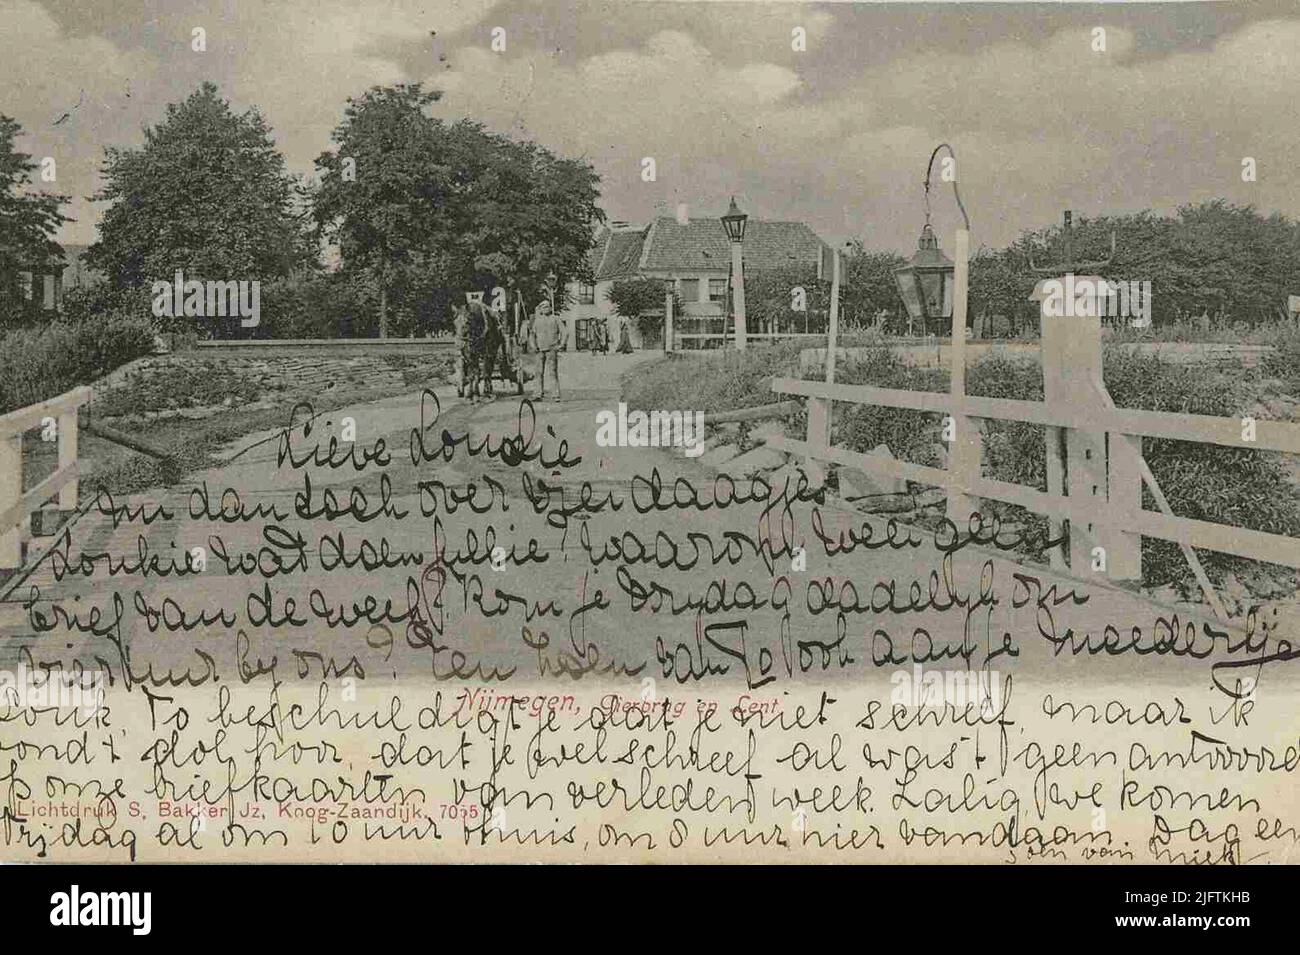 Lieve Loukie,
en dan toch over vier daagjes
Loukie wat doen jullie? waarom weer geen
brief van de week? Kom je Vrijdag dadelijk om
vier uur bij ons? Een zoen van To ook aan je moedertje
Nijmegen, Gierbrug en Lent.
Louk To beschuldigt je, dat je niet schreef, maar ik
vond 't dol hoor dat je wel schreef al was 't geen antwoord
op onze briefkaarten van verleden week. Zalig, we komen
Lichtdruk S. Bakker Jz. Koog-Zaandijk, 7055
Vrijdag al om 10 uur thuis, om 8 uur hier vandaan. Dag een
zoen van Miek
alamy
Image ID: 2JFTKHB
www.alamy.com